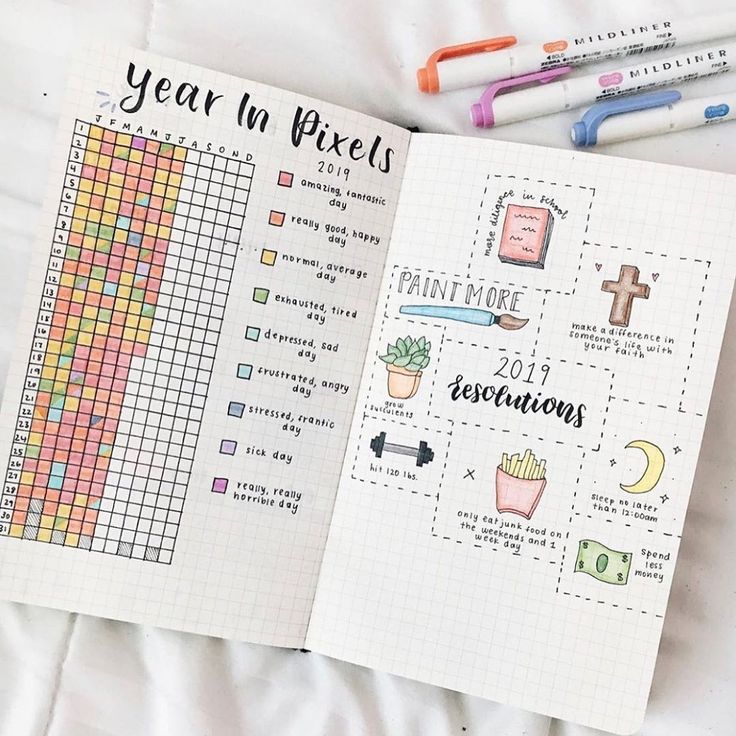 Year In Pixels
2019
J F M A M J J A S O N D
1
2
3
4
5
6
7
8
9
10
11
12
13
14
15
16
17
18
19
20
21
22
23
24
25
26
27
28
29
30
31
amazing, fantastic
day
really good, happy
day
normal, average
day
exhausted, tired
day
depressed, sad
day
frustrated, angry
day
stressed, frantic
day
sick day
really, really
horrible day
more diligence in school
PAINT MORE
make a difference in
someone's life with
your faith
grow
succulents
2019
resolutions
hit 120 lbs.
×
only eat junk food on
the weekends and 1
week day
sleep no later
than 12:00am
Spend
less
money
MILDLINER
BOLD
FINE
ZEBRA
MILDLINER
BOLD
FINE
ZEBRA